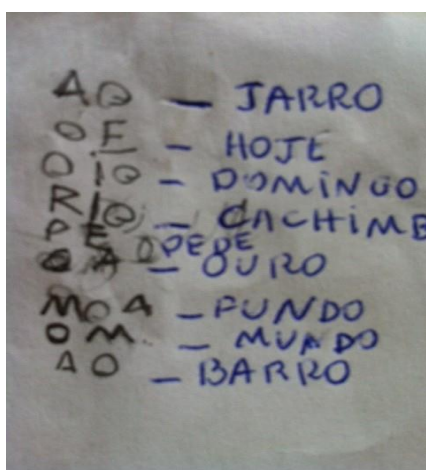 AO — JARRO
OE — HOJE
OiO — DOMiNGO
RIO — CACHiMB
PE OPEPE
OA — OURO
MOA — FUNDO
OM — MUNDO
AO — BARRO